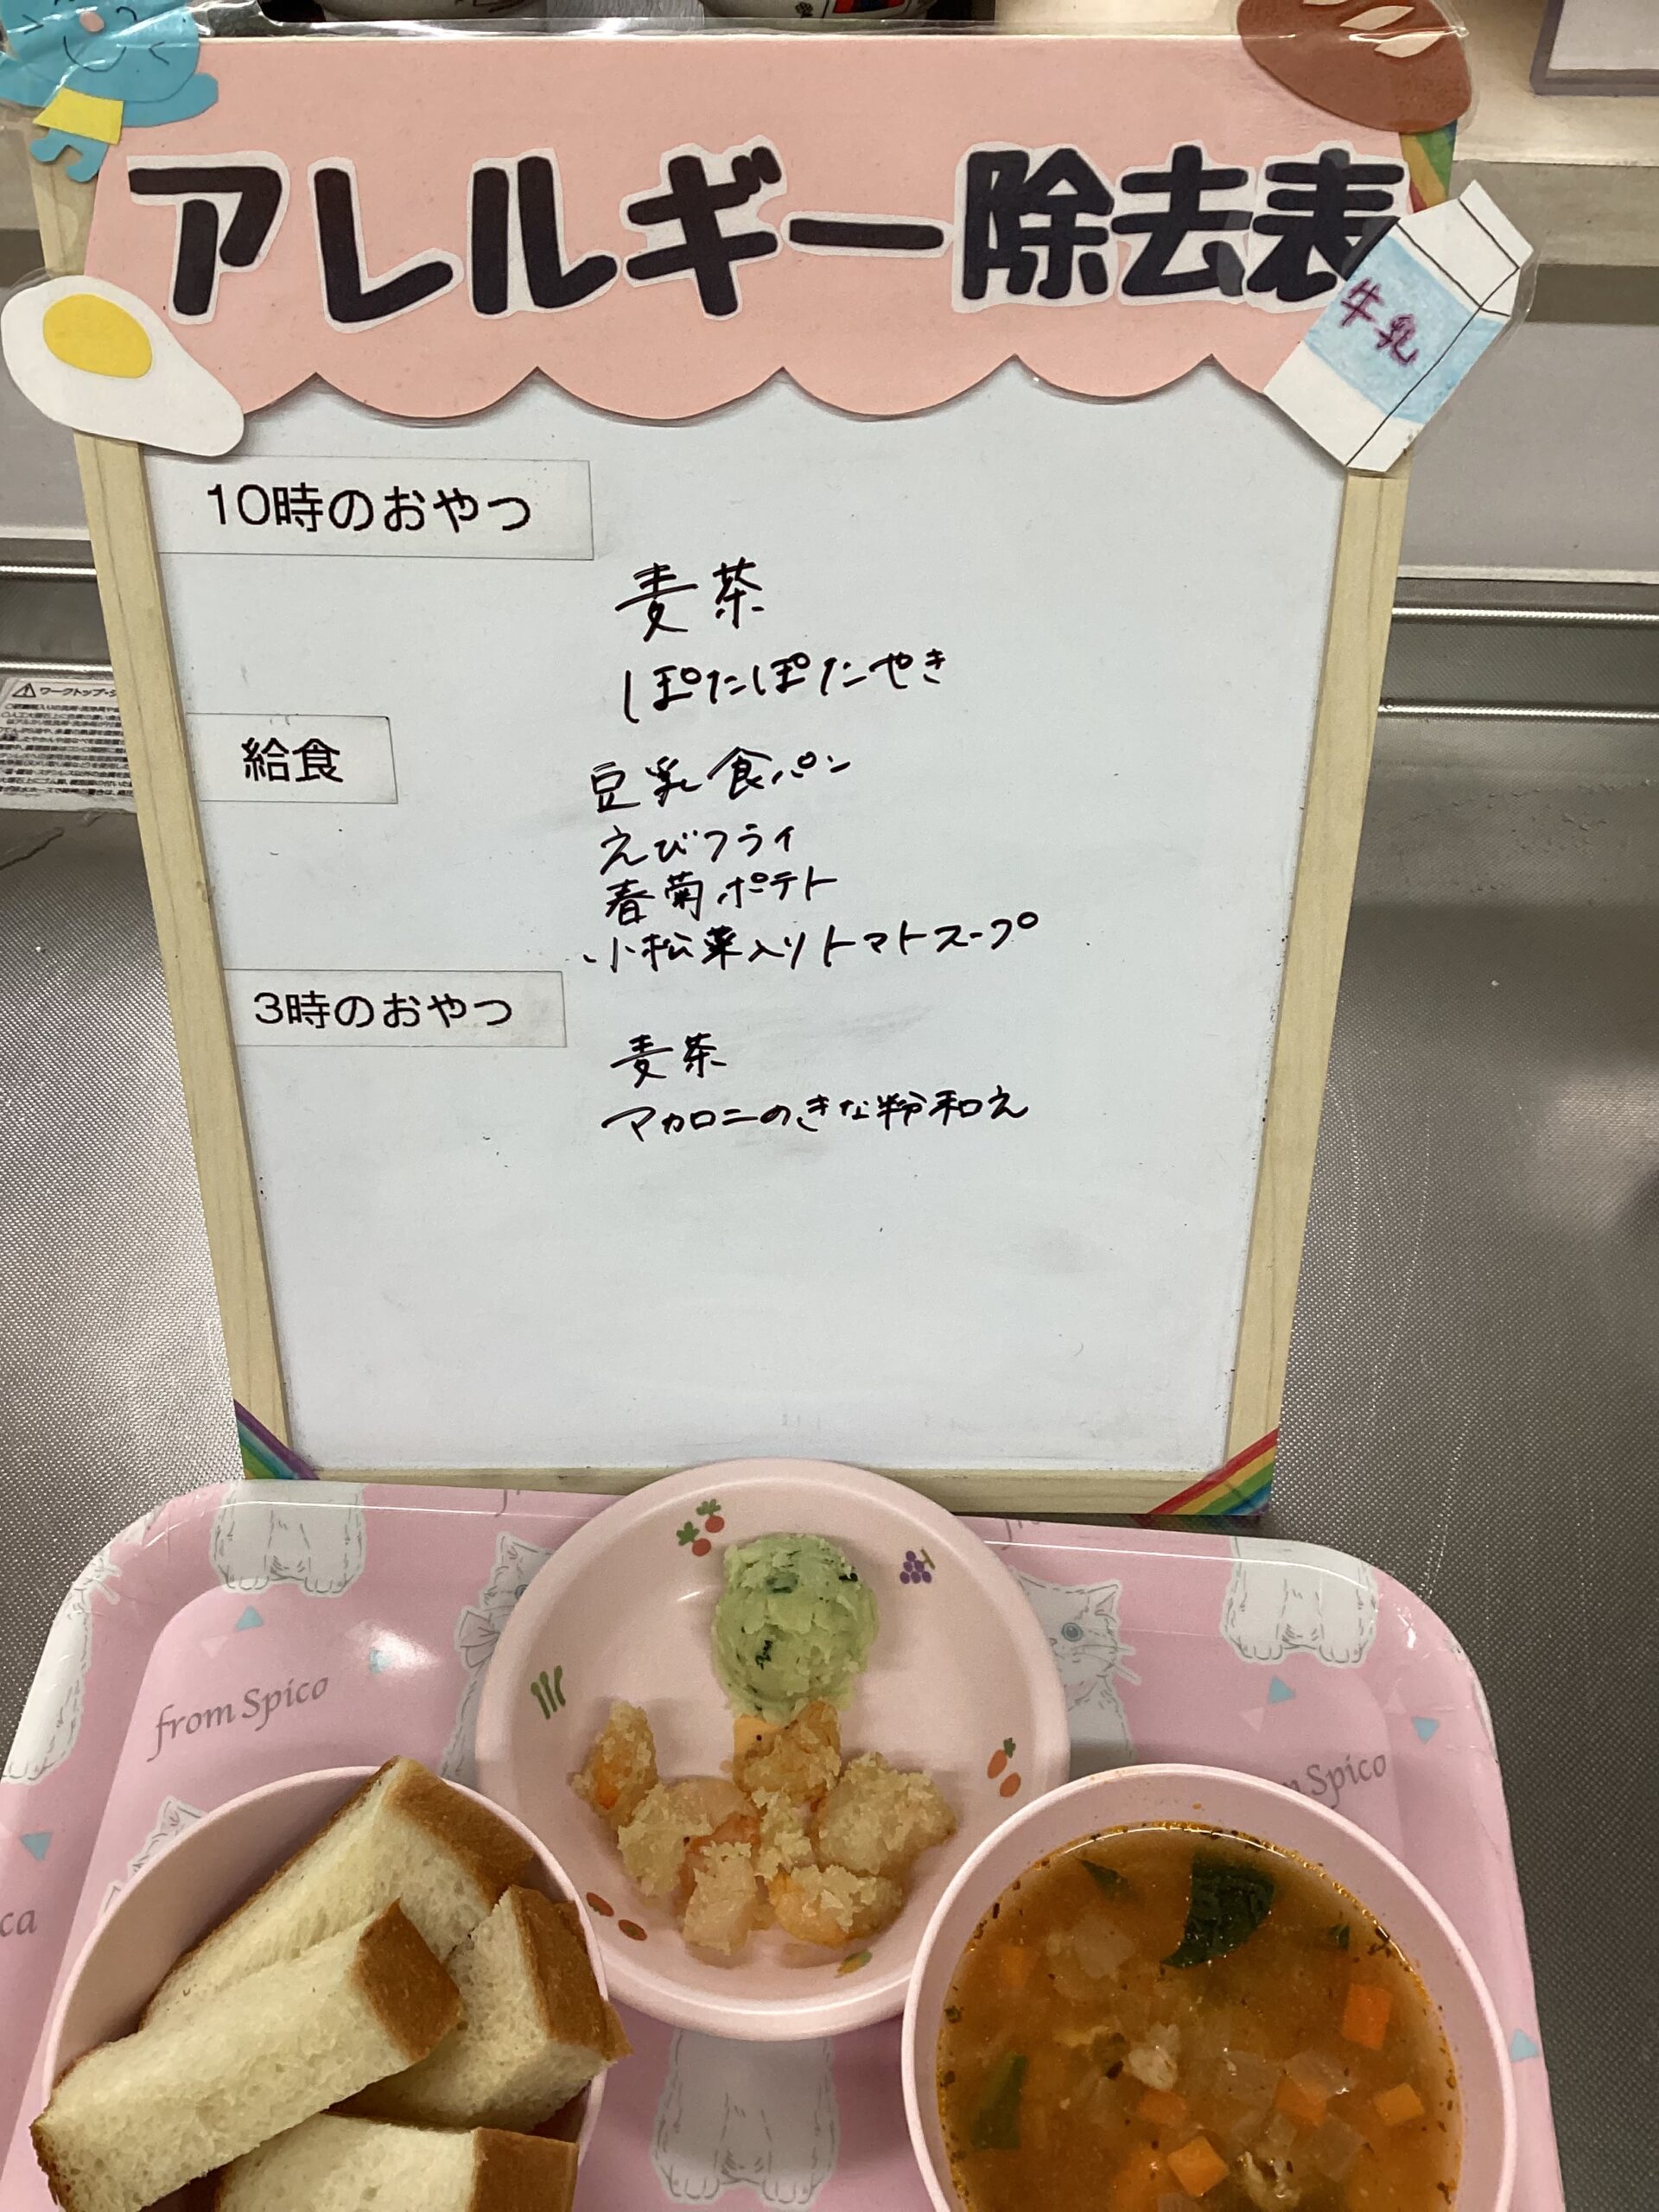 アレルギー除去表
牛乳
10時のおやつ
麦茶
ぽたぽたやき
給食
豆乳食パン
えびフライ
春菊ポテト
小松菜入りトマトスープ
3時のおやつ
麦茶
マカロニのきな粉和え
ワークトップ・シ
from Spico
m Spico
ca